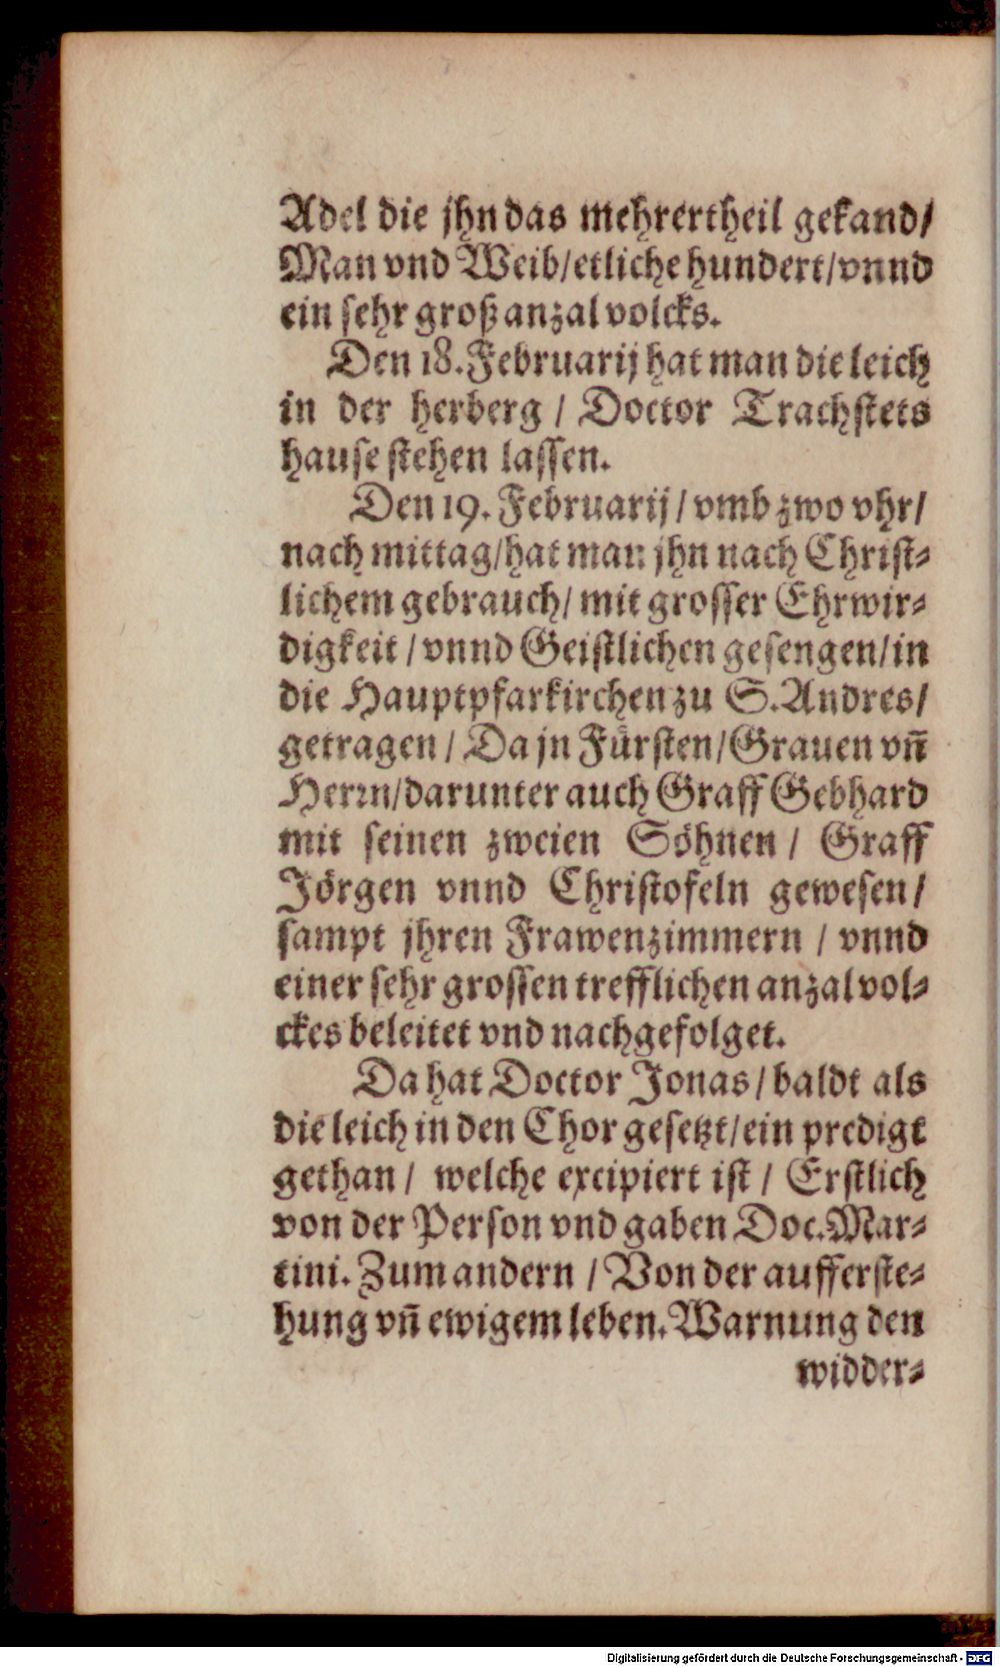 Adel die jhn das mehrertheil gekand/
Man vnd Weib/etliche hundert/vnnd
ein sehr groß anzal volcks.
Den 18. Februarij hat man die leich
in der herberg / Doctor Trachstets
hause stehen lassen.
Den 19. Februarij / vmb zwo vhr/
nach mittag/hat man jhn nach Christ⸗
lichem gebrauch/ mit grosser Ehrwir⸗
digkeit / vnnd Geistlichen gesengen/in
die Hauptpfarkirchen zu S. Andres/
getragen / Da jn Fürsten/Grauen vn̄
Herrn/darunter auch Graff Gebhard
mit seinen zweien Söhnen / Graff
Jörgen vnnd Christofeln gewesen/
sampt jhren Frawenzimmern / vnnd
einer sehr grossen trefflichen anzal vol⸗
ckes beleitet vnd nachgefolget.
Da hat Doctor Jonas/baldt als
die leich in den Chor gesetzt/ein predigt
gethan/ welche excipiert ist / Erstlich
von der Person vnd gaben Doc. Mar⸗
tini. Zum andern / Von der aufferste⸗
hung vn̄ ewigem leben. Warnung den
widder⸗
Digitalisierung gefördert durch die Deutsche Forschungsgemeinschaft - DFG